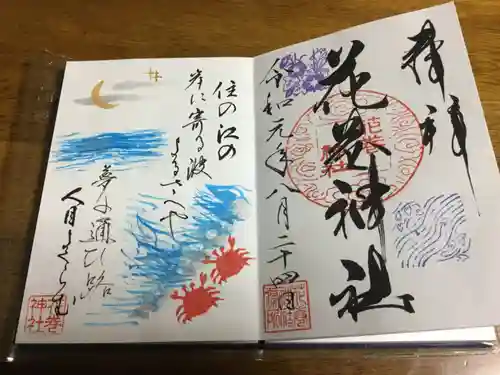 奉拝
花巻神社
令和元年八月二十四日
住の江の
岸に寄る波
よるさへや
夢の通ひ路
人目よくらむ
花巻
神社